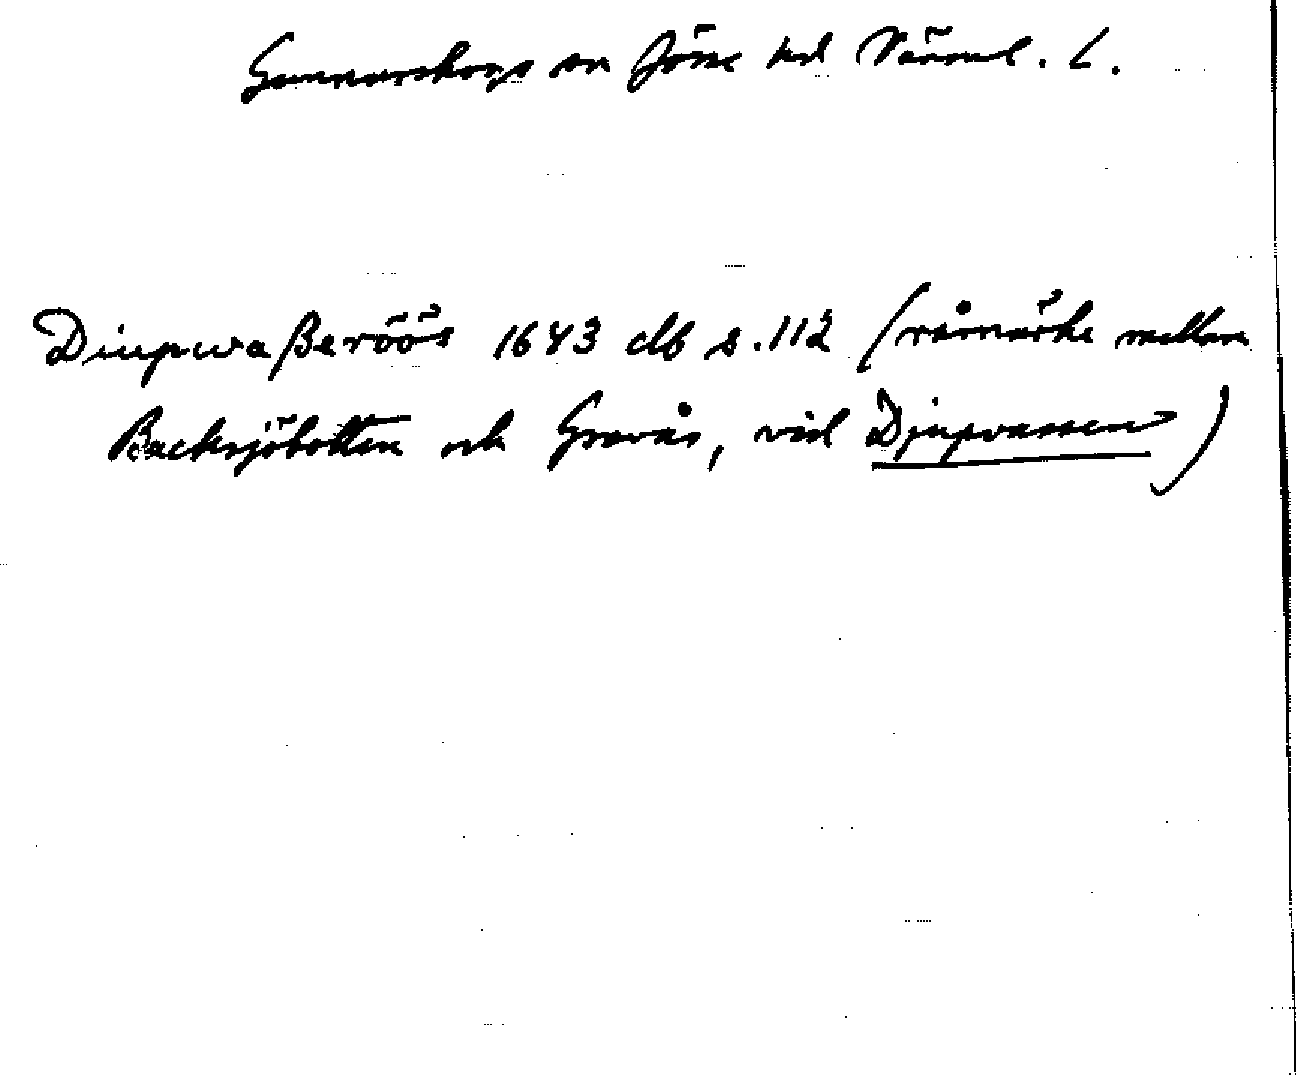 Gunnarskogs sn Jösse hd Värml. L.
Diupwaßeröös 1643 db s. 112 (råmärke mellan
Backsjöbotten och Gravås, vid Djupvassen)